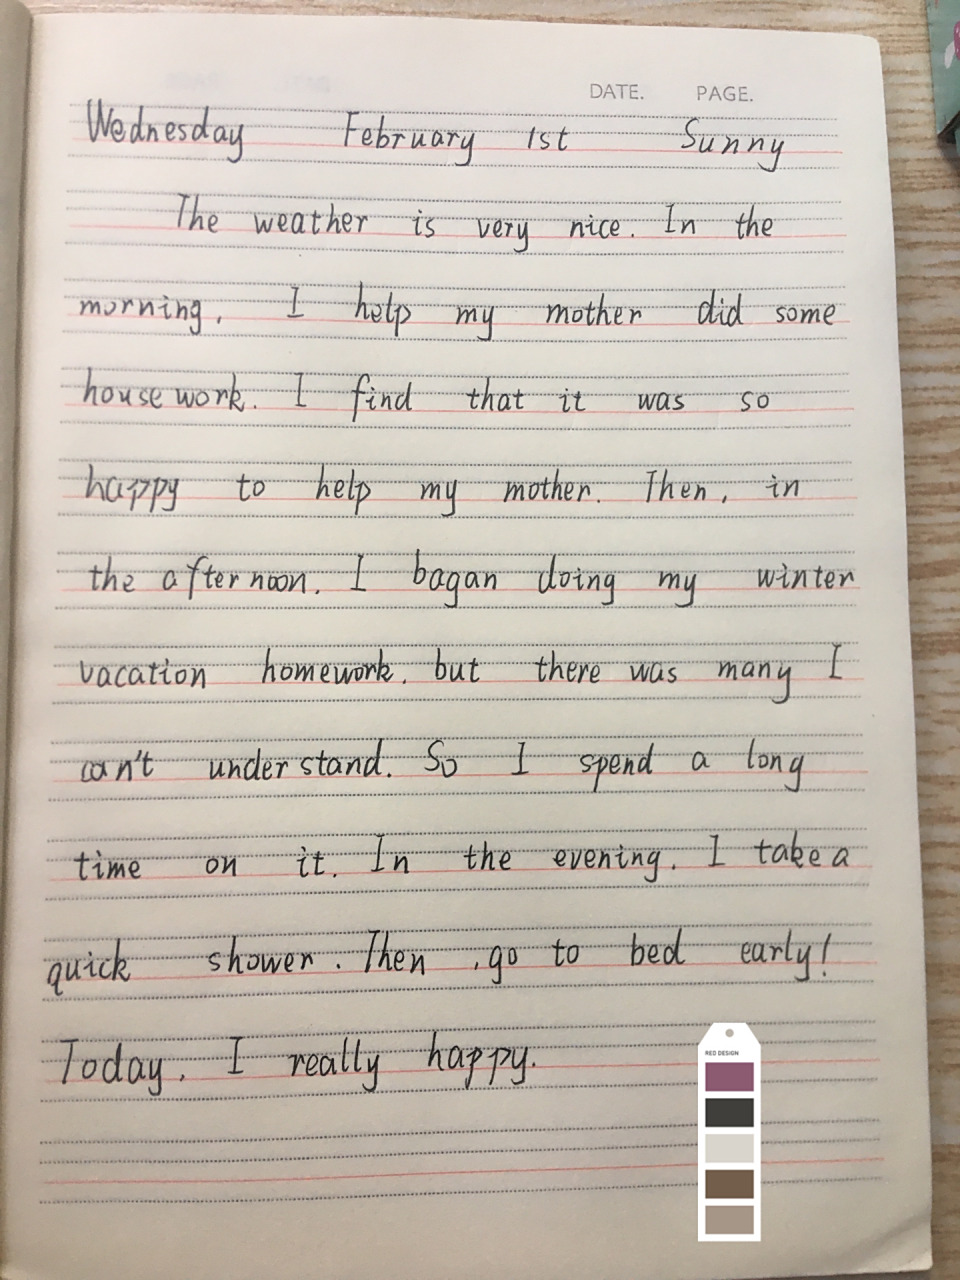 DATE. PAGE.
Wednesday February 1st Sunny
The weather is very nice. In the
morning, I help my mother did some
housework. I find that it was so
happy to help my mother. Then, in
the afternoon. I bagan doing my winter
vacation homework. but there was many I
can't understand. So I spend a long
time on it. In the evening. I take a
quick shower. Then ,go to bed early!
Today, I really happy.
RED DESIGN